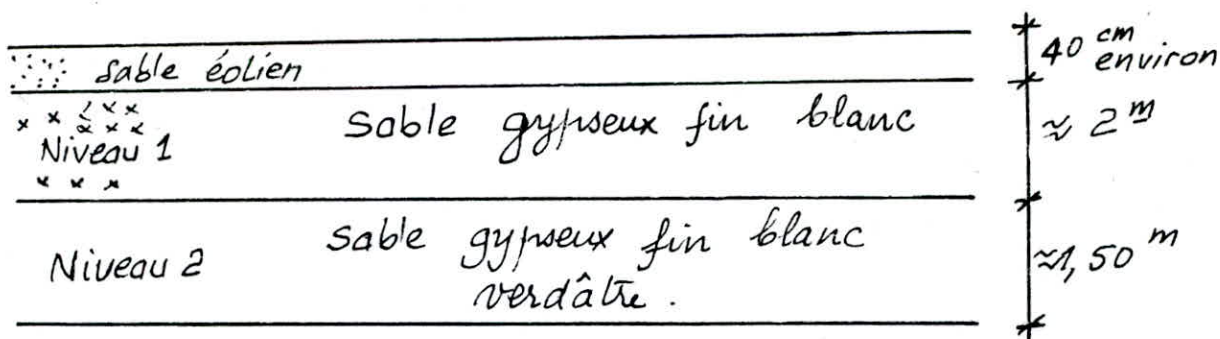 sable éolien
40 cm
environ
Niveau 1
Sable gypseux fin blanc
≈ 2 m
Niveau 2
sable gypseux fin blanc
verdâtre.
≈1,50 m